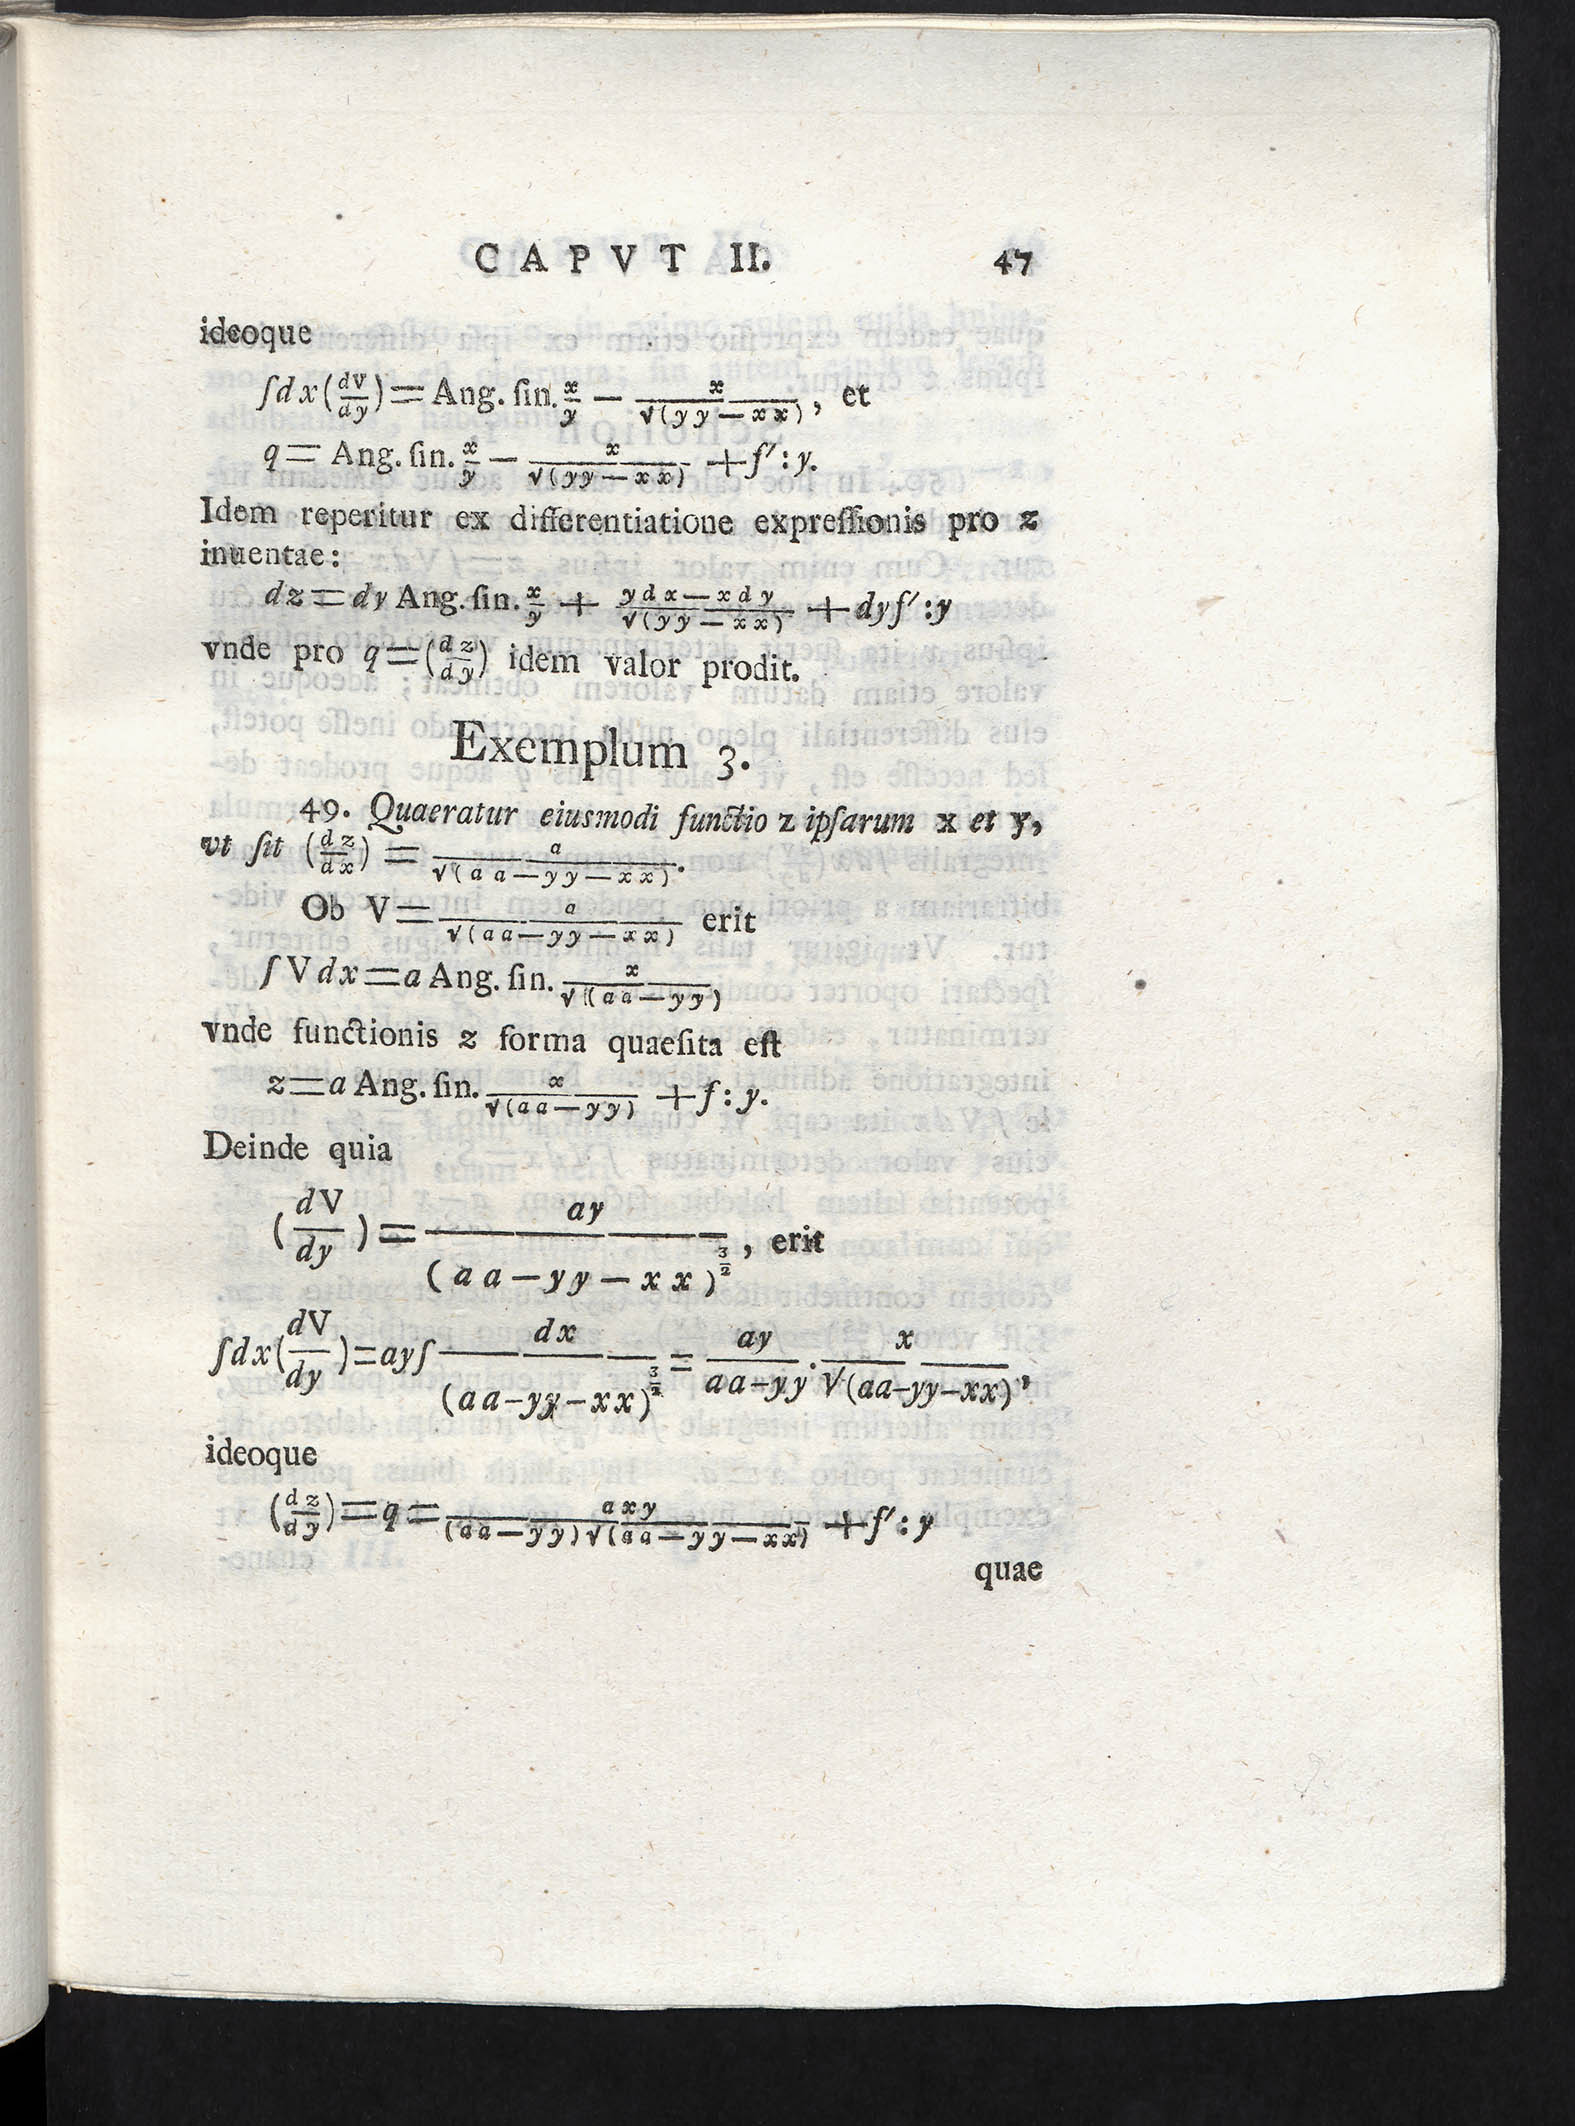 CAPVT II. 47
ideoque
∫dx(dV/dy)=Ang. ſin. x/y − x/√(yy−xx), et
q= Ang. ſin. x/y − x/√(yy−xx) +f′:y.
Idem reperitur ex differentiatione expreſſionis pro z
inuentae:
dz=dy Ang. ſin. x/y + ydx−xdy/√(yy−xx) +dyf′:y
vnde pro q=(dz/dy) idem valor prodit.
Exemplum 3.
49. Quaeratur eiusmodi functio z ipſarum x et y,
vt ſit (dz/dx) = a/√(aa−yy−xx).
Ob V= a/√(aa−yy−xx) erit
∫Vdx=a Ang. ſin. x/√(aa−yy)
vnde functionis z forma quaeſita eſt
z=a Ang. ſin. x/√(aa−yy) +f:y.
Deinde quia
(dV/dy)= ay/(aa−yy−xx)^3/2, erit
∫dx(dV/dy)=ay∫ dx/(aa−yy−xx)^3/2 = ay/aa−yy . x/√(aa−yy−xx),
ideoque
(dz/dy)=q= axy/(aa−yy)√(aa−yy−xx) +f′:y
quae